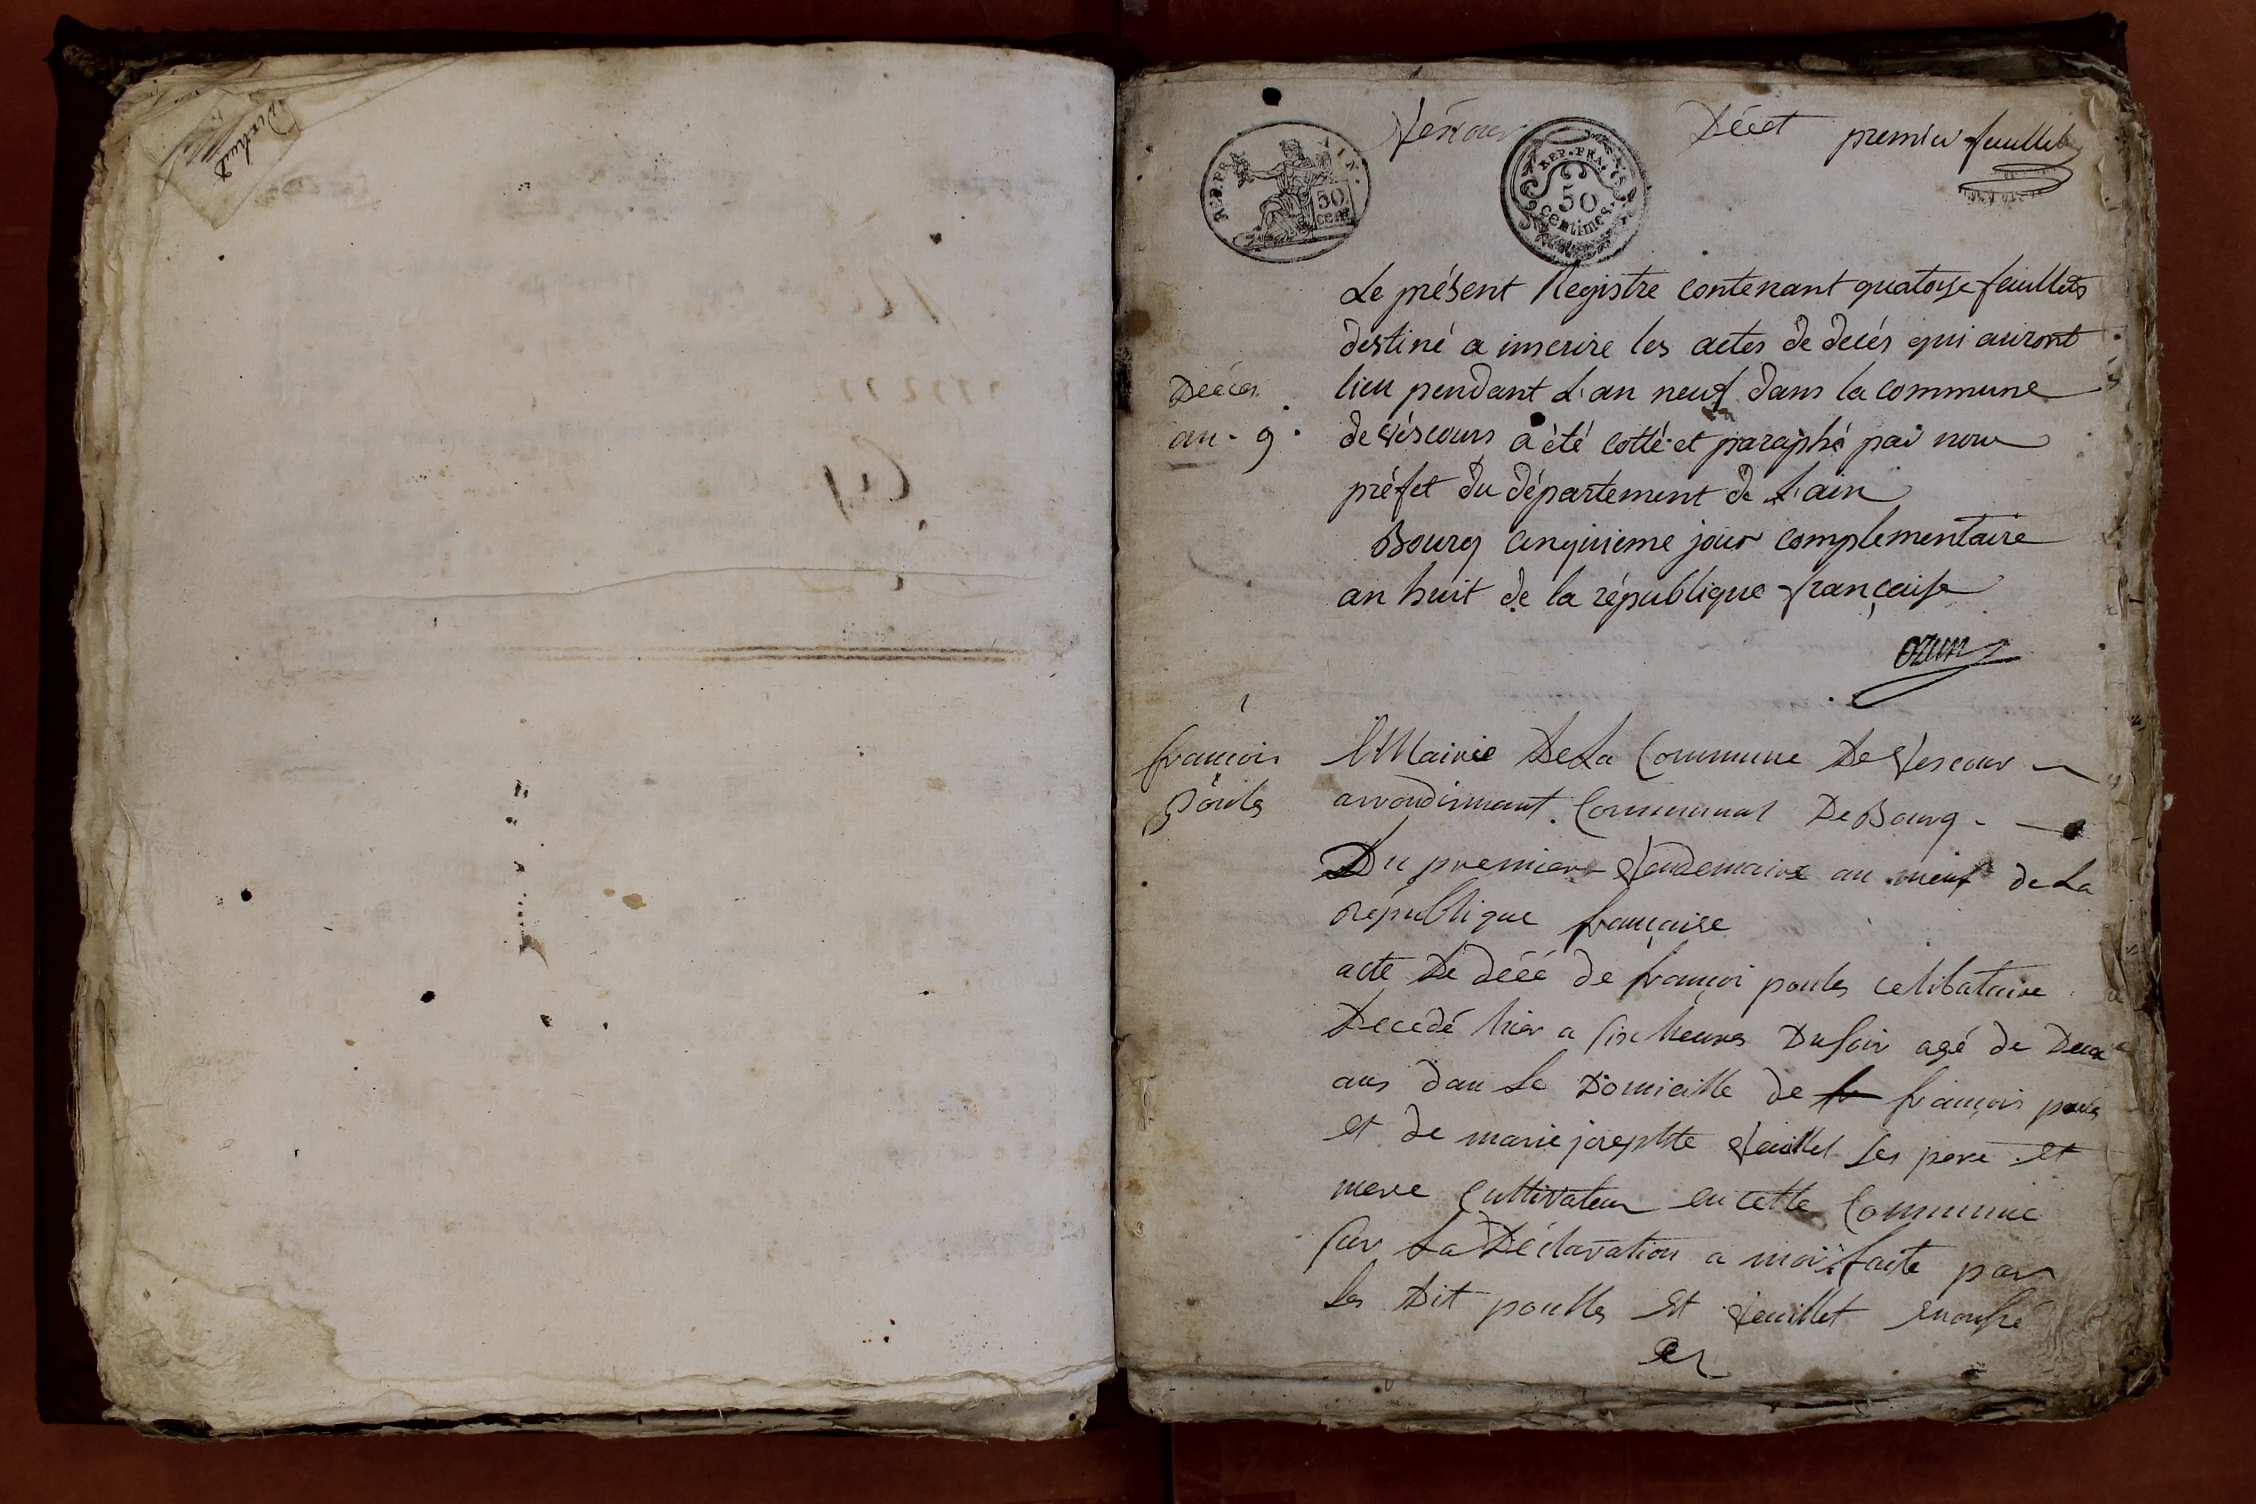 Véscour
Décet
premier feuillet
REP. FRA.
50
cent
REP. FRA.
50
centimes.
Le présent Registre contenant quatorze feuillets
destiné a inscrire les actes de decés qui auront
Decès
lieu pendant L'an neuf dans la commune
an. 9.
de véscours a été cotté et paraphé par nous
préfet du département de L'ain
Bourg cinquieme jour complementaire
an huit de la république française
ozun
1
françois
Poules
Mairie De La Commune De Vescour
arrondismant Communal De Bourg
Du premier Vendemaire an neuf de La
republique française
acte De décé de françoi poules celibataire
Decedé hier a six heures Du soir agé de Deux
ans dan Le Domicille de françois poules
et de marie josephte Veuillet ses pere et
mere Cultivateur en cette Commune
sur La Déclaration a moi faite par
les Dit poulles et Veuillet